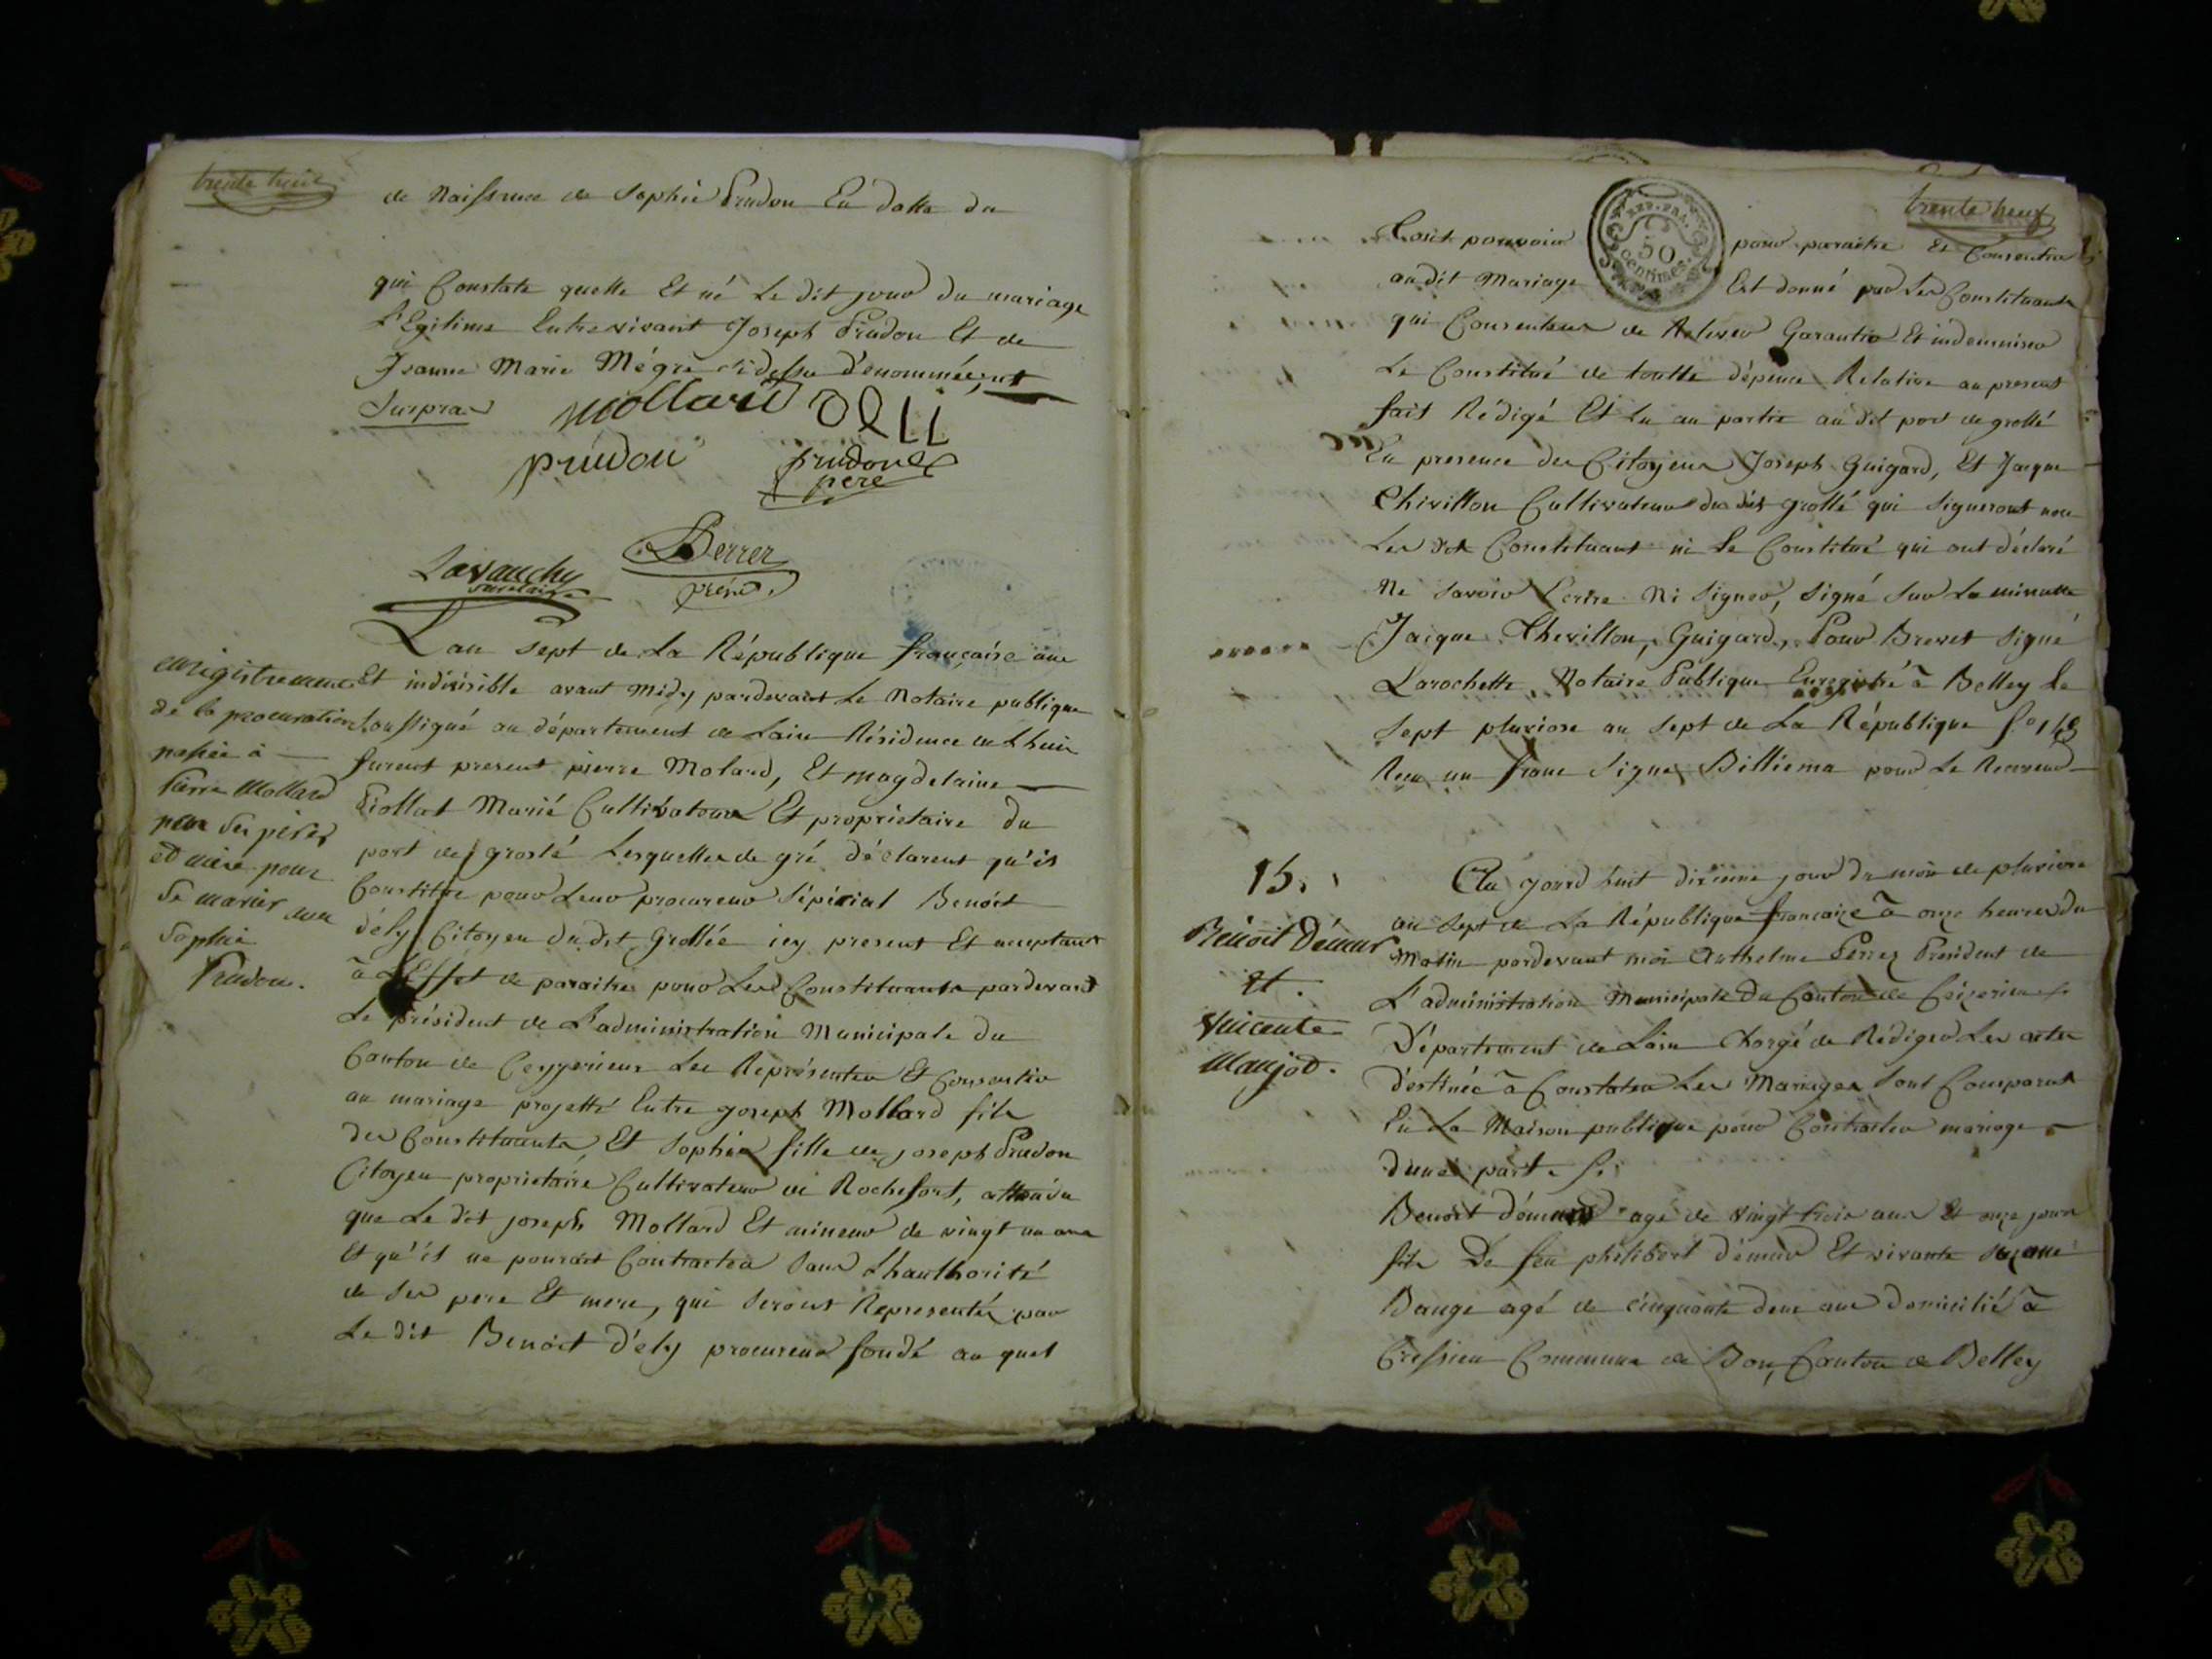 trente huit
de Naissance de Sophie Prudon En datte du
qui Constate quelle Et né Le dit jour du mariage
L'Egitime Entre vivant Joseph Prudon Et de
Jeanne Marie Mégre cidessu dénommée
Surpra
mollard DELI
prudon prudon
pere
Lavauchy
Perrer
prés.
Lan Sept de La République française une
Et indivisible avant midy pardevant Le Notaire publique
Soussigné au département de Lain Résidence de Lhuis
furent present pierre Molard, Et magdelaine
Piollat Marié Cultivateur Et proprietaire du
port de grosté Lesquelles de gré déclarent qu'il
Constitue pour Leur procureur Sépécial Benoit
dély Citoyen dudit Grollée icy present Et acceptant
à L'Effet de paraitre pour Les Constituants pardevant
Le président de L'administration Municipale du
Canton de Ceyzerieux Les Représenter Et Consentir
au mariage projetté Entre joseph Mollard fils
des Constituants, Et Sophie fille de joseph Prudon
Citoyen proprietaire Cultivateur de Rochefort, attendu
que Le dit joseph Mollard Et mineur de vingt un ans
Et qu'il ne pourait Contracter Sans Lhauthorité
de Ses pere Et mere, qui Seront Representés par
Le dit Benoit d'ely procureur fondé au quel
enrigistrement
de la procuration
passée à
Pierre Mollard
par Ses pères
et mère pour
Se marier avec
Sophie
Prudon.
trente neuf
REP. FRA.
50
centimes.
tout pouvoir pour paraitre Et Consentir
audit Mariage Est donné par Les Constituants
qui Consentent de Relever Garantir Et indemniser
Le Constitué de toutte dépence Relative au present
fait Rédigé Et Lu au partie au dit port de grollé
En presence des Citoyens Joseph Guigard, Et Jacque
Chivillon Cultivateur du dit grollé qui Signeront non
Les dit Constituant ni Le Constitué qui ont déclaré
Ne Savoir Ecrire Ni Signer, Signé Sur La minutte
Jacque Chevillon, Guigard, Pour Brevet Signé
Larochette, Notaire Publique Enregistré à Belley Le
Sept pluviose an Sept de La République f° 148
Reçu un franc Signé Billiema pour Le Receveur
15.
Benoit Démeur
et.
vincente
Manjod.
Au jourd huit dixieme jour du mois de pluviose
an Sept de La République française à onze heures du
Matin pardevant moi Anthelme Perrer President de
L'administration Municipale du Canton de Ceizerieu
Département de Lain Chargé de Rédiger Les actes
destinée à Constater Les Mariages Sont Comparut
En La Maison publique pour Contracter mariage
dune part
Benoit démeur agé de vingt trois ans Et onze jours
fils De feu philibert démeur Et vivante Suzanne
Bauge agé de cinquante deux ans domicilié à
Cressieu Commune de Bon, Canton de Belley